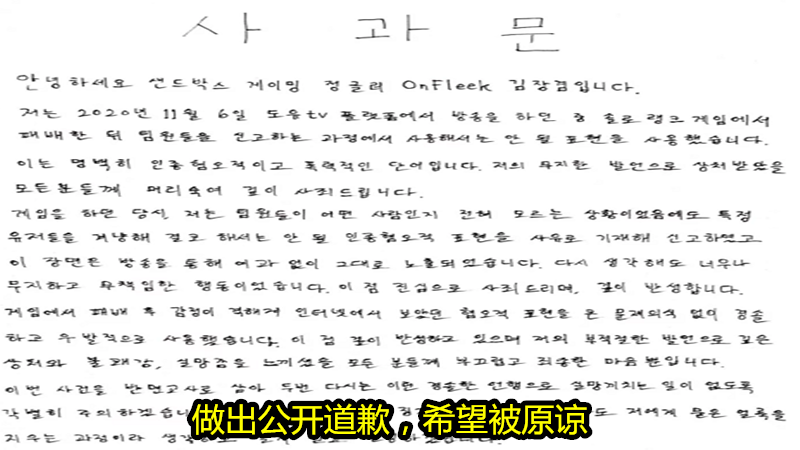 사 과 문
안녕하세요 샌드박스 게이밍 정글러 OnFleek 김장겸입니다.
저는 2020년 11월 6일 도유tv 플랫폼에서 방송을 하던 중 솔로랭크 게임에서
패배한 뒤 팀원들을 신고하는 과정에서 사용해서는 안 될 표현을 사용했습니다.
이는 명백히 인종혐오적이고 폭력적인 단어입니다. 저의 무지한 발언으로 상처받았을
모든분들께 머리숙여 깊이 사죄드립니다.
게임을 하던 당시 저는 팀원들이 어떤 사람인지 전혀 모르는 상황이었음에도 특정
유저들을 겨냥해 결코 해서는 안 될 인종혐오적 표현을 사유로 기재해 신고하였고
이 장면은 방송을 통해 여과 없이 그대로 노출되었습니다. 다시 생각해도 너무나
무지하고 무책임한 행동이었습니다. 이 점 진심으로 사죄드리며, 깊이 반성합니다.
게임에서 패배 후 감정이 격해져 인터넷에서 보았던 혐오적 표현을 큰 문제의식 없이 경솔
하고 우발적으로 사용했습니다. 이 점 깊이 반성하고 있으며 저의 부적절한 발언으로 깊은
상처와 불쾌감, 실망감을 느끼셨을 모든 분들께 부끄럽고 죄송한 마음뿐입니다.
이번 사건을 반면교사로 삼아 두번 다시는 이런 경솔한 언행으로 실망끼치는 일이 없도록
각별히 주의하겠습니 도 저에게 묻은 얼룩을
지우는 과정이라 생각하
做出公开道歉，希望被原谅